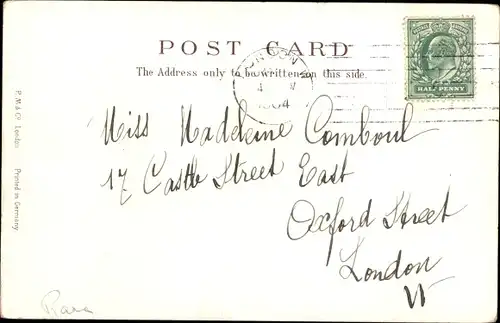 POST CARD
The Address only to be written on this side.
LONDON
1904
HALF PENNY
Miss Madeleine Comboul
17 Castle Street East
Oxford Street
London
W
P. M. & Co. London. Printed in Germany
Rara